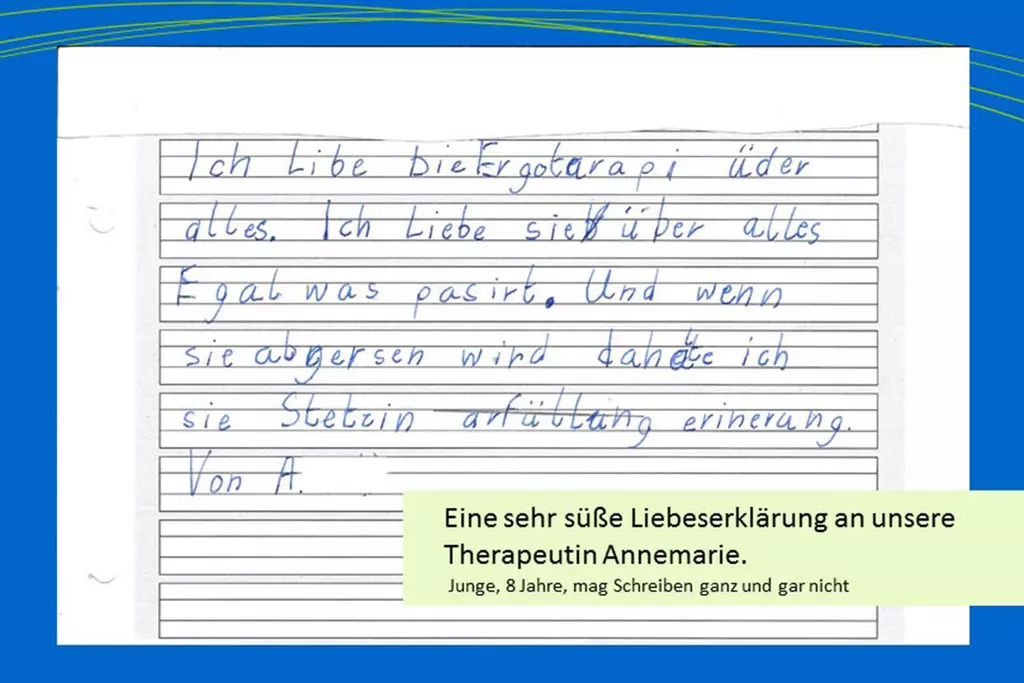 Ich Libe die Ergotarapi üder
alles. Ich Liebe sie über alles
Egal was pasirt. Und wenn
sie abgersen wird dahate ich
sie Stetzin arfüllung erinerung.
Von A.
Eine sehr süße Liebeserklärung an unsere
Therapeutin Annemarie.
Junge, 8 Jahre, mag Schreiben ganz und gar nicht